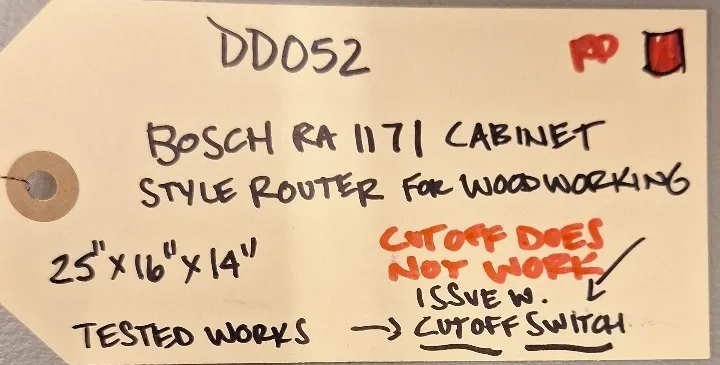 DD052 RD
BOSCH RA 1171 CABINET
STYLE ROUTER FOR WOODWORKING
25" X 16" X 14"
CUTOFF DOES
NOT WORK
ISSUE W.
TESTED WORKS → CUTOFF SWITCH